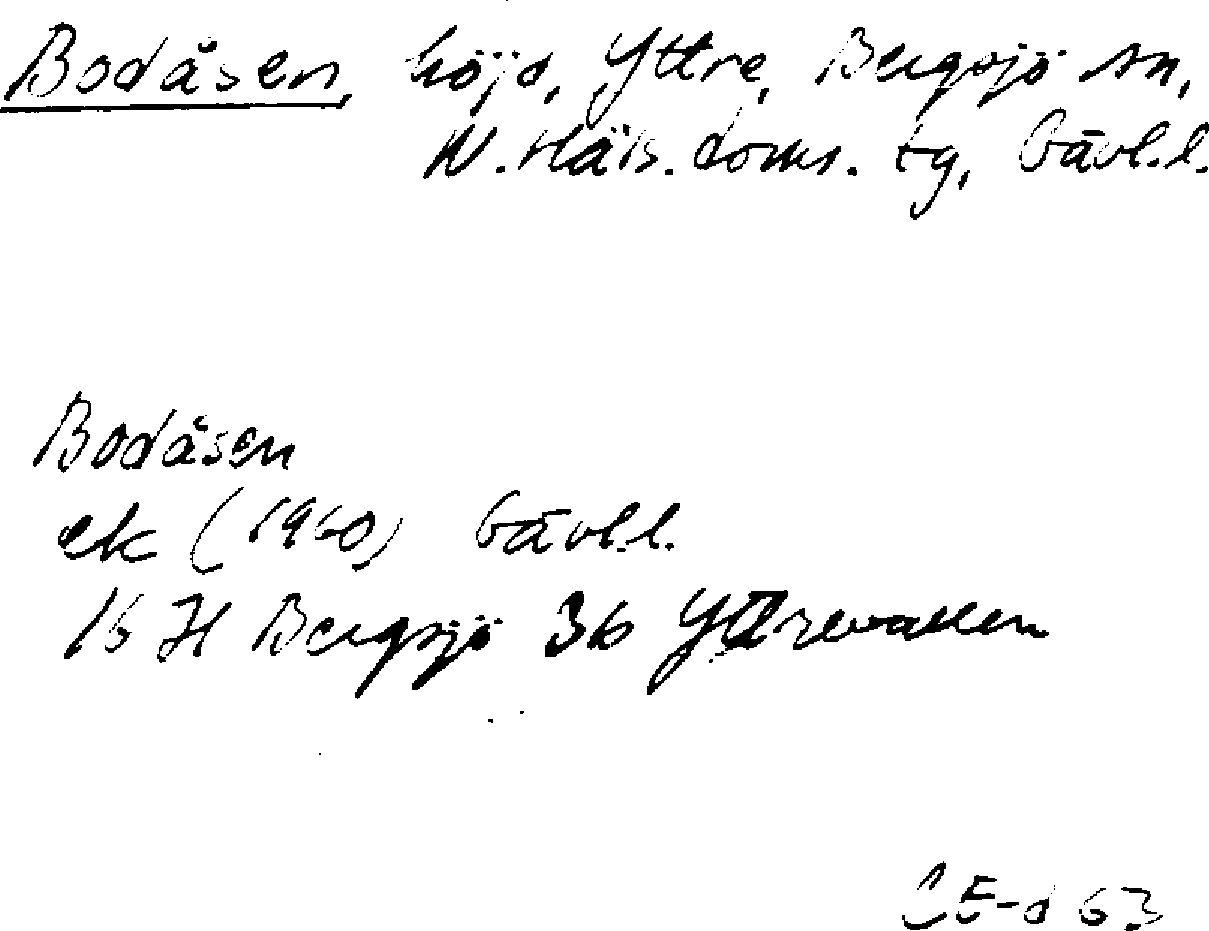 Bodåsen, höjd, Yttre, Bergsjö sn,
N. Häls. doms. tg, Gävl.l.
Bodåsen
ek (1960) Gävl.l.
16 H Bergsjö 3b Yttrevallen
CE-d 63